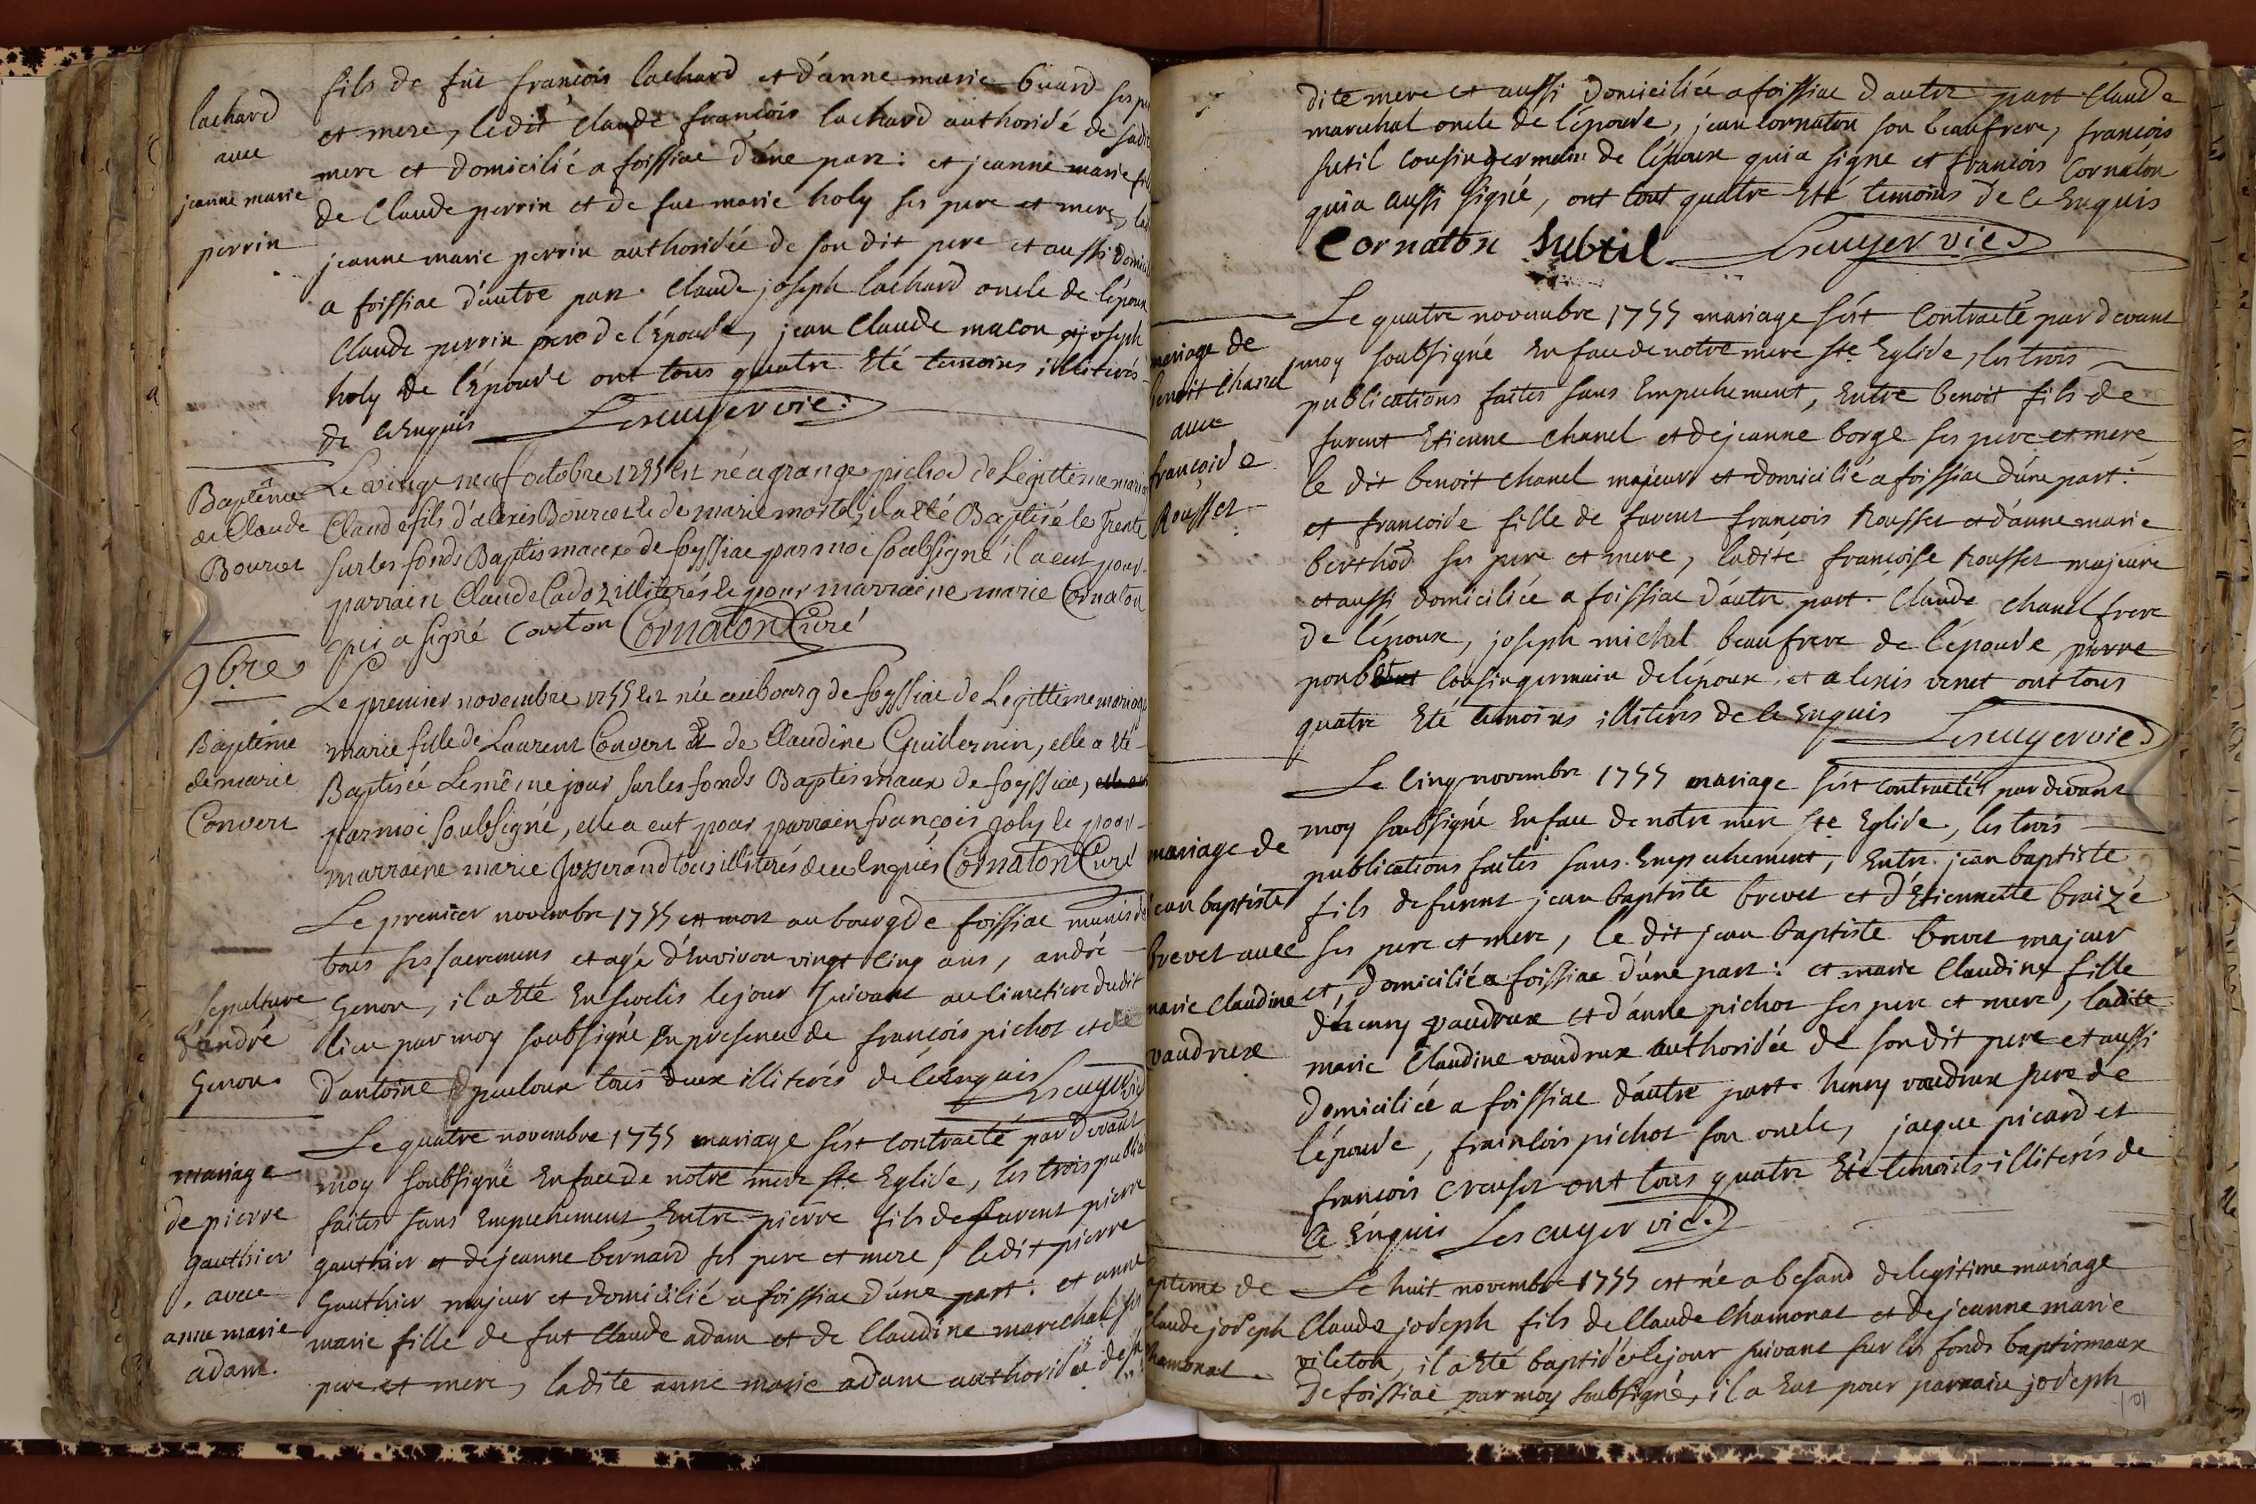 lachard
avec
jeanne marie
perrin
fils de fut françois lachard et d'anne marie buard ses
et mere, ledit Claude françois lachard authorisé de sadit
mere et domicilié a foissiac d'une part : et jeanne marie
de Claude perrin et de fut marie holy ses pere et mere,
jeanne marie perrin authorisée de son dit pere et aussi
a foissiac d'autre part. Claude joseph lachard oncle de l'époux
Claude perrin pere de l'épouse, jean Claude macon et joseph
holy de l'épouse ont tous quatre Eté temoins illiterés
de ce Enquis Lescuyer vic:
Baptême
de Claude
Bourcet
Le vingt neuf octobre 1755 est né a grange pichod de Legittime
Claude fils d'alexis Bourcet et de marie mostel, il a eté Baptisé le Trente
sur les fonds Baptismaux de foyssiac par moi soubsigné il a eut pour
parrain Claude Cadoz illiterés et pour marraine marie Cornaton
qui a signé Cornaton Curé
9bre
Baptême
de marie
Convert
Le premier novembre 1755 est née au bourg de foyssiac de Legittime mariage
marie fille de Laurent Convert et de Claudine Guillermin, elle a Eté
Baptisée Le même jour sur les fonds Baptismaux de foyssiac,
par moi soubsigné, elle a eut pour parrain françois joly et pour
marraine marie josserand tous illiterés de ce Enquis Cornaton Curé
sepulture
d'andré
Genon
Le premier novembre 1755 est mort au bourg de foissiac munis de
tous ses sacremens et agé d'Environ vingt cinq ans, andré
Genon, il a Eté Enseveli le jour suivant au cimetiere dudit
lieu par moy soubsigné En presence de françois pichot et de
d'antoine puvloux tous deux illiterés de ce Enquis Lescuyer vic
mariage
de pierre
gauthier
avec
anne marie
adam.
Le quatre novembre 1755 mariage s'est contracté par devant
moy soubsigné En face de notre mere ste Eglise, les trois
faites sans Empechement, Entre pierre fils de furent pierre
gauthier et de jeanne bernard ses pere et mere, ledit pierre
Gauthier majeur et domicilié a foissiac d'une part : et anne
marie fille de fut Claude adam et de Claudine marechal ses
pere et mere, ladite anne marie adam authorisée de sa
dite mere et aussi domiciliée a foissiac d'autre part Claude
marechal oncle de l'épouse, jean Cornaton son beaufrere, françois
subtil cousin germain de l'époux qui a signé et françois Cornaton
qui a aussi signé, ont tout quatre Eté temoins de ce Enquis
Cornaton Subtil Lescuyer vic
mariage de
benoit Chanel
avec
françoise
Rousset
Le quatre novembre 1755 mariage s'est contracté par devant
moy soubsigné En face de notre mere ste Eglise, les trois
publications faites sans Empechement, Entre benoit fils de
furent Etienne Chanel et de jeanne borge ses pere et mere
le dit benoit Chanel majeur et domicilié a foissiac d'une part :
et françoise fille de furent françois Rousset et d'anne marie
berthod ses pere et mere, ladite françoise Rousset majeure
et aussi domiciliée a foissiac d'autre part. Claude Chanel frere
de l'époux, joseph michel beaufrere de l'épouse, pierre
cousin germain de l'époux, et alexis venet ont tous
quatre Eté temoins illiterés de ce Enquis Lescuyer vic
mariage de
jean baptiste
brevet avec
marie Claudine
vaudreux
Le cinq novembre 1755 mariage s'est contracté par devant
moy soubsigné En face de notre mere ste Eglise, les trois
publications faites sans Empechement, Entre jean baptiste
fils de furent jean baptiste brevet et d'Etiennette braizé
ses pere et mere, le dit jean baptiste brevet majeur
et domicilié a foissiac d'une part : et marie Claudine fille
d'henry vaudreux et d'anne pichot ses pere et mere, ladite
marie Claudine vaudreux authorisée de son dit pere et aussi
domiciliée a foissiac d'autre part. henry vaudreux pere de
l'épouse, frainçois pichot son oncle, jacque picard et
françois creuset ont tous quatre Eté temoins illiterés de
ce Enquis Lescuyer vic.
baptême de
Claude joseph
Chamonat
Le huit novembre 1755 est né a besand de legitime mariage
Claude joseph fils de Claude Chamonat et de jeanne marie
vileton, il a Eté baptisé le jour suivant sur les fonds baptismaux
de foissiac par moy soubsigné, il a Eut pour parrain joseph
101